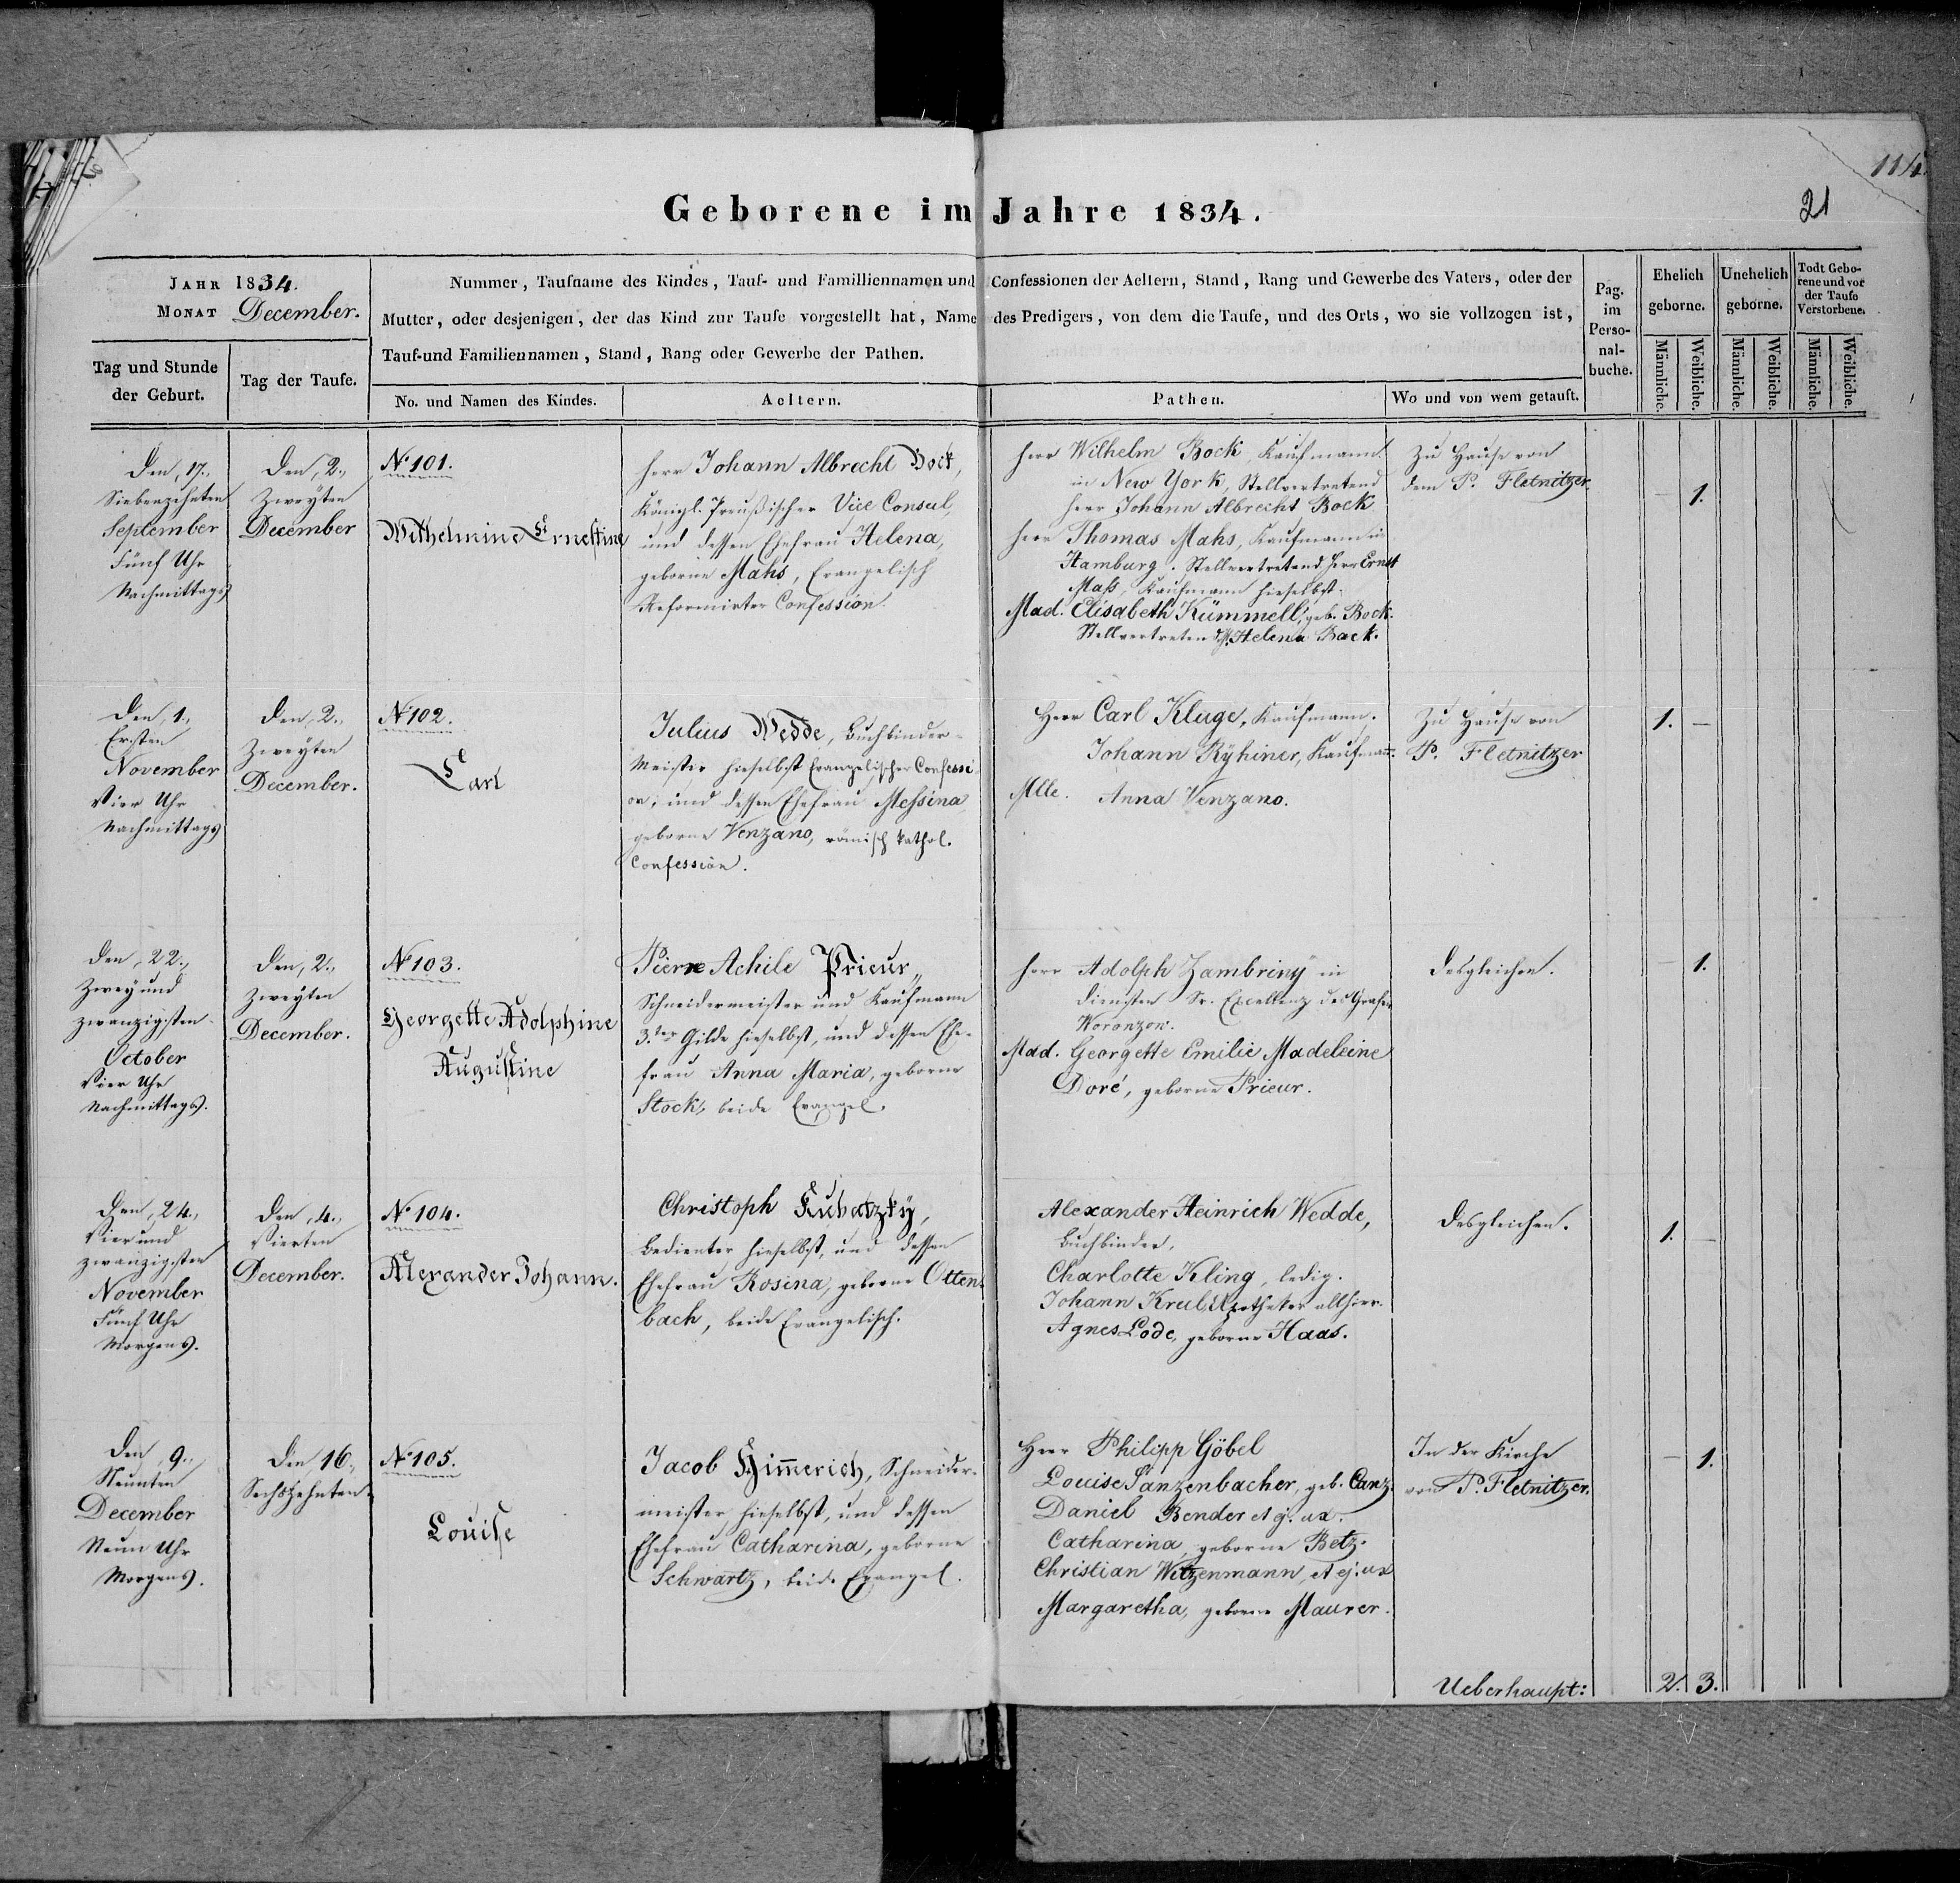 114.
21
Geborene im Jahre 1834.
JAHR 1834.
MONAT December.
Tag und Stunde
der Geburt.
Tag der Taufe.
Nummer, Taufname des Kindes, Tauf- und Familliennamen und Confessionen der Aeltern, Stand, Rang und Gewerbe des Vaters, oder der
Mutter, oder desjenigen, der das Kind zur Taufe vorgestellt hat, Name des Predigers, von dem die Taufe, und des Orts, wo sie vollzogen ist,
Tauf-und Familiennamen, Stand, Rang oder Gewerbe der Pathen.
No. und Namen des Kindes.
Aeltern.
Pathen.
Wo und von wem getauft.
Pag.
im
Perso-
nal-
buche.
Ehelich
geborne.
Unehelich
geborne.
Todt Gebo-
rene und vor
der Taufe
Verstorbene.
Männliche.
Weibliche.
Männliche.
Weibliche.
Männliche.
Weibliche.
Den 17.,
Siebenzehnten
September
Fünf Uhr
Nachmittags
Den 2.,
Zweyten
December
No 101.
Wilhelmine Ernestine
Herr Johann Albrecht Bock,
Königl. Preußischer Vice Consul,
und dessen Ehefrau Helena,
geborne Mahs, Evangelisch
Reformirter Confession.
Herr Wilhelm Bock Kaufmann
in New York, Stellvertretend
Herr Johann Albrecht Bock
Herr Thomas Mahs, Kaufmann in
Hamburg. Stellvertretend Herr Ernst
Mahs, Kaufmann hieselbst.
Mad. Elisabeth Kümmell, geb. Bock.
Stellvertretend Helena Bock.
Zu Hause von
dem P. Fletnitzer.
– 1.
Den 1.,
Ersten
November
Vier Uhr
Nachmittags
Den 2.,
Zweyten
December.
No 102.
Carl
Julius Wedde, Buchbinder-
Meister hieselbst Evangelischer Confessi-
on, und dessen Ehefrau Messina
geborne Venzano, römisch kathol.
Confession.
Herr Carl Kluge, Kaufmann.
Johann Ryhiner, Kaufmann.
Mlle. Anna Venzano.
Zu Hause von
P. Fletnitzer
1. –
Den 22.,
Zwey und
zwanzigsten
October
Vier Uhr
Nachmittags.
Den 2.,
Zweyten
December.
No 103.
Georgette Adolphine
Augustine
Pierre Achile Prieur,
Schneidermeister und Kaufmann
3.ter Gilde hieselbst, und dessen Ehe-
frau Anna Maria, geborne
Stock, beide Evangel.
Herr Adolph Zambriny in
Diensten Sr. Excellenz des Grafen
Woronzow.
Mad. Georgette Emilie Madeleine
Doré, geborne Prieur.
Desgleichen.
– 1.
Den 24.,
Vier und
zwanzigsten
November
Fünf Uhr
Morgens.
Den 4.,
Vierten
December.
No 104.
Alexander Johann.
Christoph Kubatzky,
Bedienter hieselbst, und dessen
Ehefrau Rosina, geborne Otten-
bach, beide Evangelisch.
Alexander Heinrich Wedde,
Buchbinder,
Charlotte Kling, ledig.
Johann Krul, Apotheker allhier.
Agnes Lode, geborne Haas.
Desgleichen.
1. –
Den 9.,
Neunten
December
Neun Uhr
Morgens.
Den 16.,
Sechszehnten
No 105.
Louise
Jacob Himmerich, Schneider-
meister hieselbst, und dessen
Ehefrau Catharina, geborne
Schwartz, beide Evangel.
Herr Philipp Göbel
Louise Panzenbacher, geb. Canz.
Daniel Bender et ej. ux.
Catharina, geborne Betz.
Christian Witzenmann, et ej. ux
Margaretha, geborne Maurer.
In der Kirche
von P. Fletnitzer.
– 1.
Ueberhaupt: 2. 3.